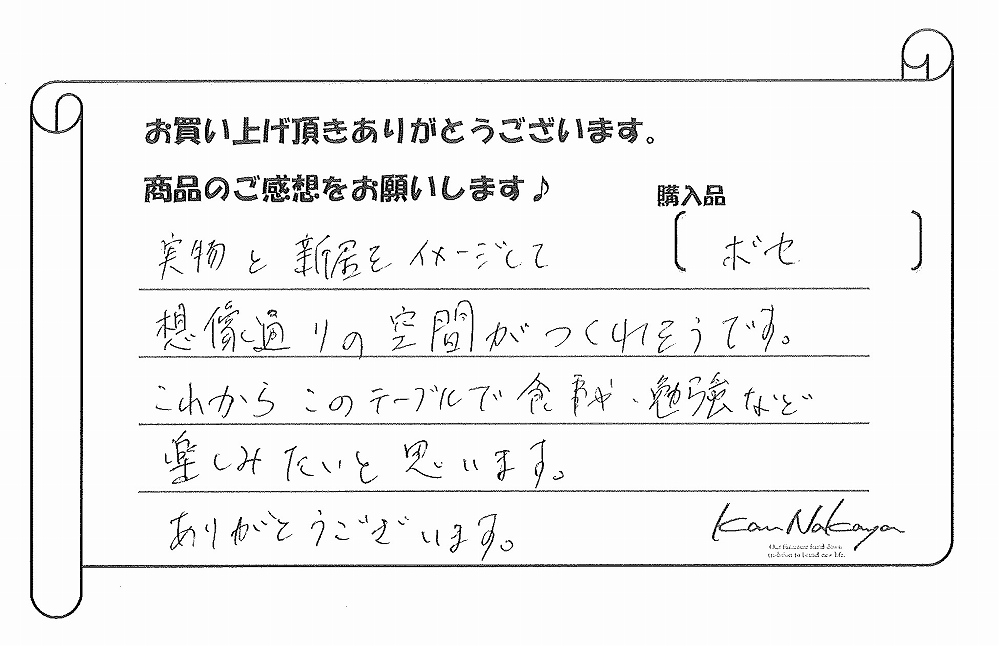 お買い上げ頂きありがとうございます。
商品のご感想をお願いします♪
購入品
ボセ
実物と新居をイメージして
想像通りの空間がつくれそうです。
これからこのテーブルで食事や、勉強など
楽しみたいと思います。
ありがとうございます。
Kan Nakayama
Our furniture hand down
tradition to brand new life.